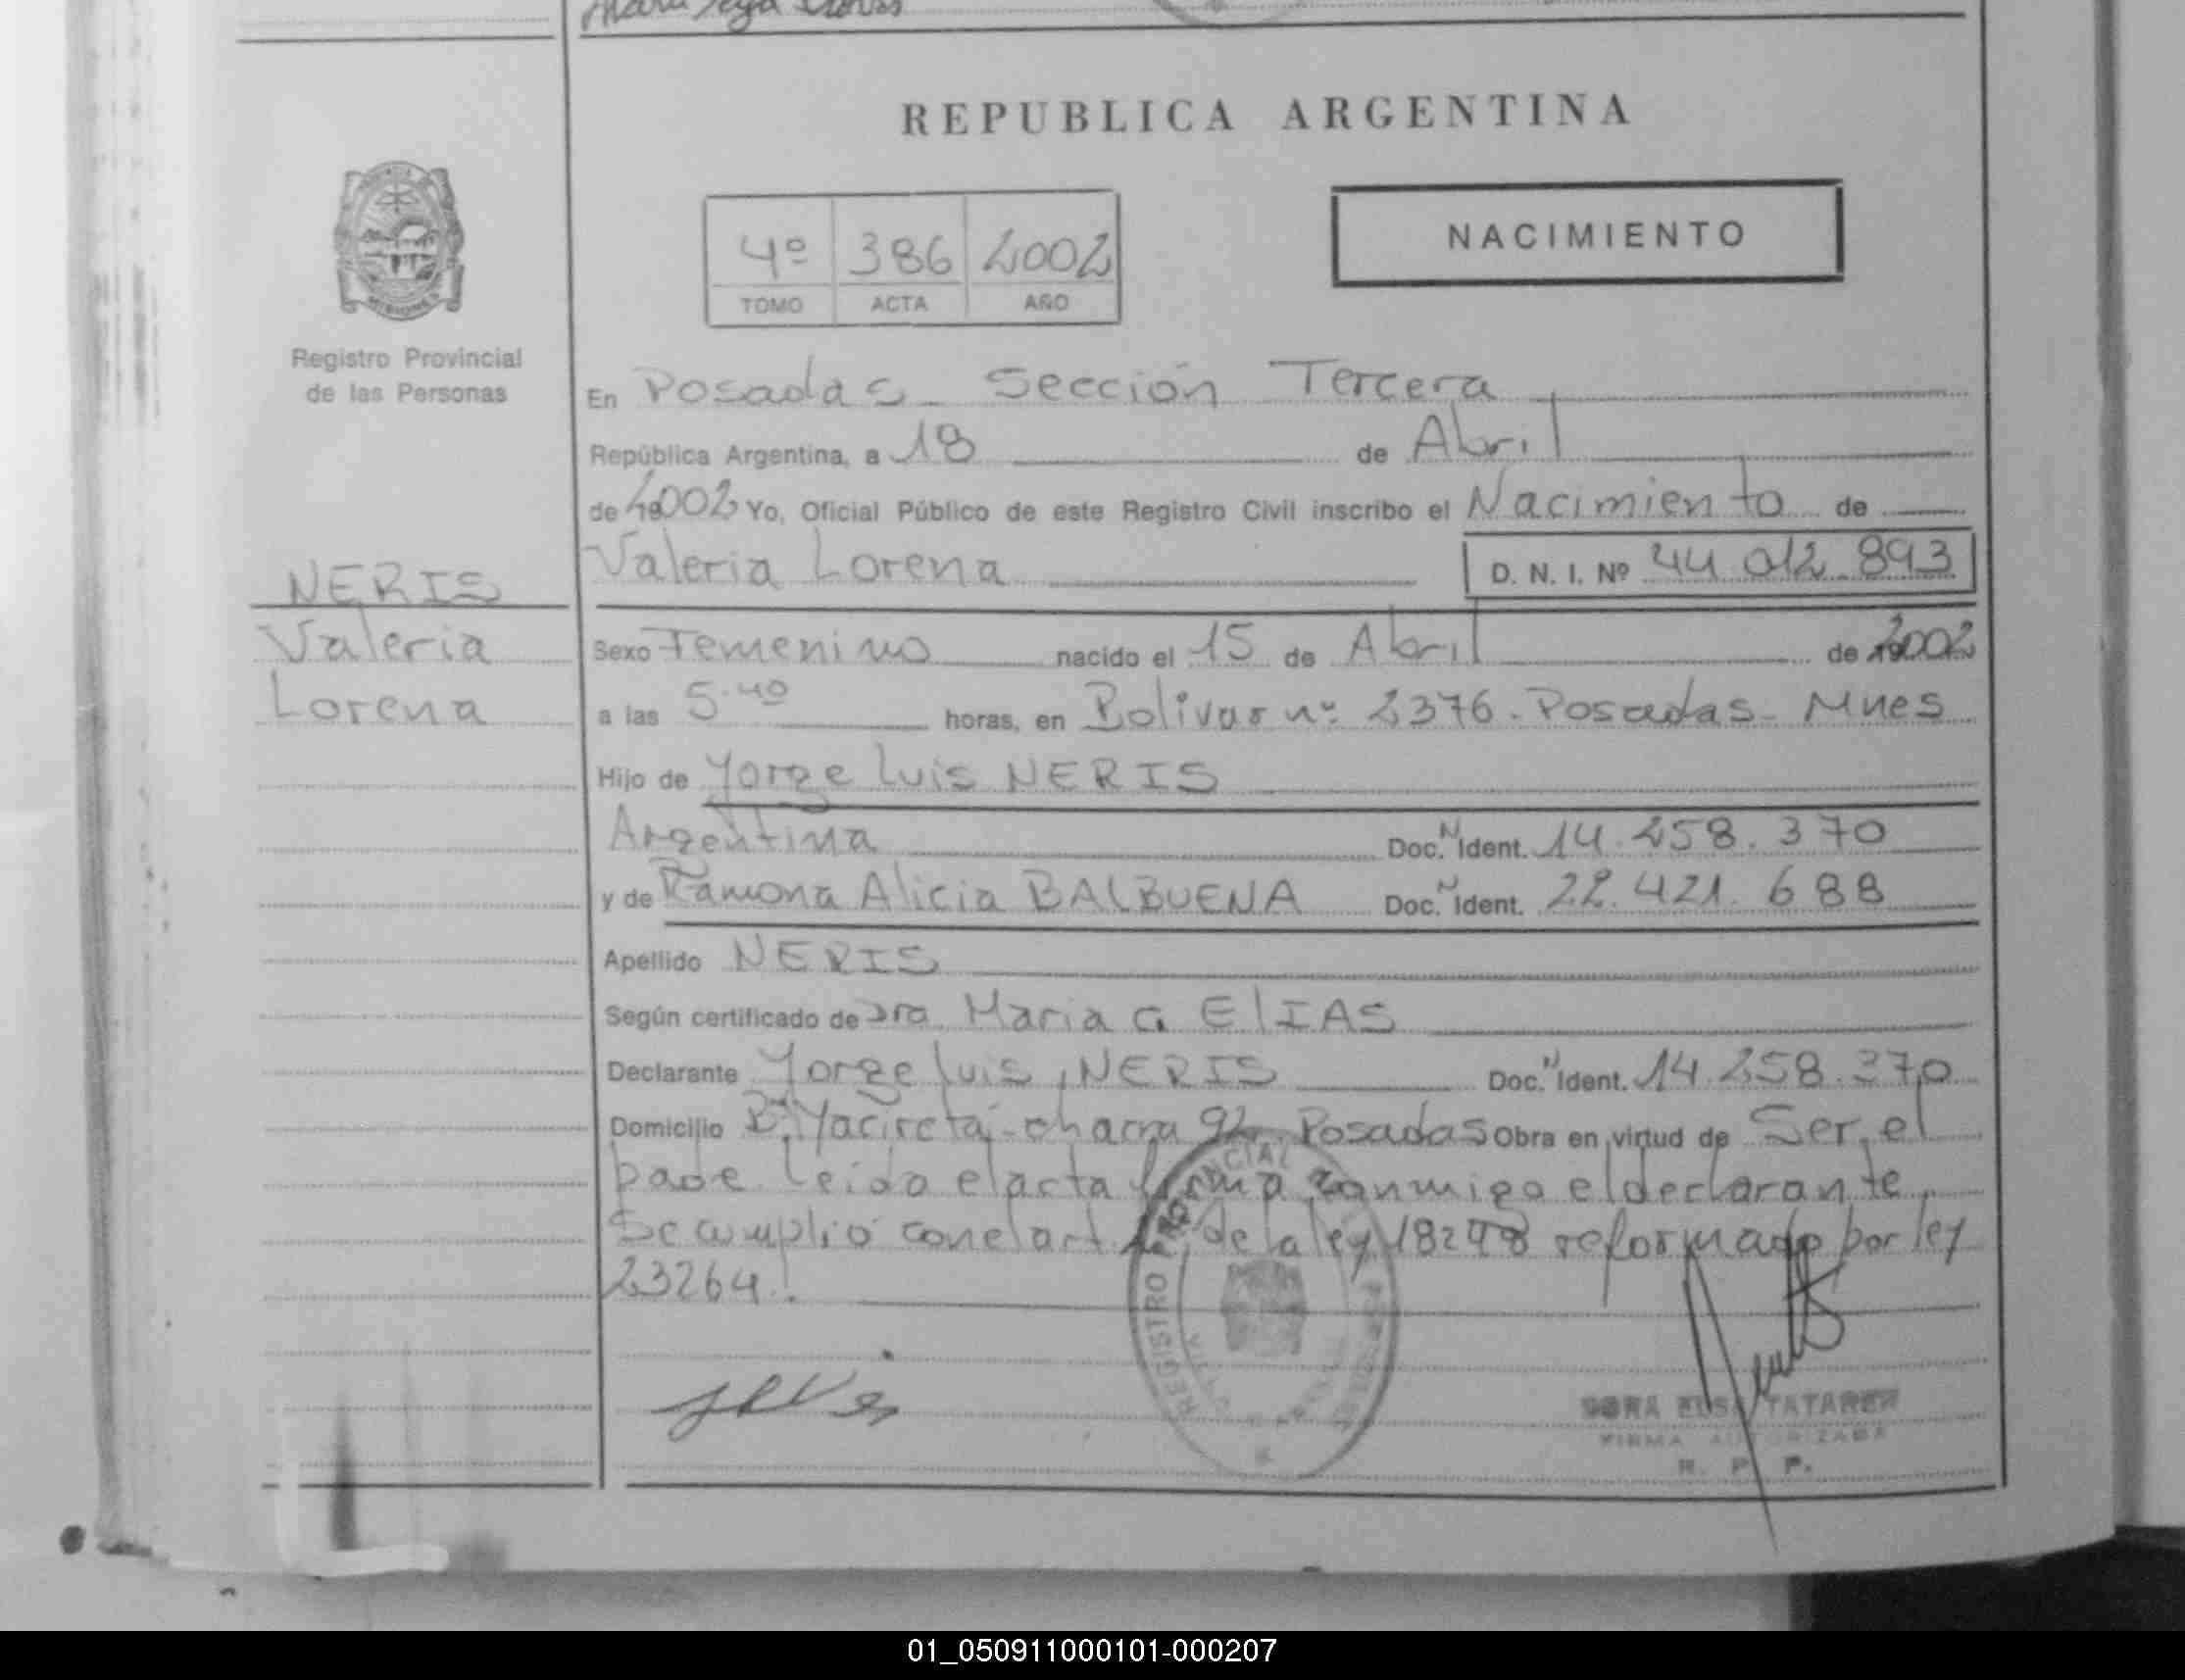 REPUBLICA ARGENTINA
4º 386 2002
TOMO ACTA AÑO
NACIMIENTO
Registro Provincial
de las Personas
En Posadas - Sección Tercera
República Argentina, a 18 de Abril
de 2002 Yo, Oficial Público de este Registro Civil inscribo el Nacimiento de
Valeria Lorena D. N. I. Nº 44 012 893
NERIS
Valeria
Lorena
Sexo Femenino nacido el 15 de Abril de 2002
a las 5.40 horas, en Bolivar nº 2376 - Posadas - Mnes
Hijo de Jorge Luis NERIS
Argentina Doc. N Ident. 14.258.370
y de Ramona Alicia BALBUENA Doc. N Ident. 22.421.688
Apellido NERIS
Según certificado de Dra. Maria G ELIAS
Declarante Jorge Luis NERIS Doc. N Ident. 14.258.370
Domicilio Bº Yacireta - chacra 92 - Posadas Obra en virtud de Ser el
padre Leida el acta firma conmigo el declarante
Se cumplió con el art de la ley 18248 reformado por ley
23264.
REGISTRO PROVINCIAL
DORA ELSA TATAREN
FIRMA AUTORIZADA
R. P. P.
01_050911000101-000207